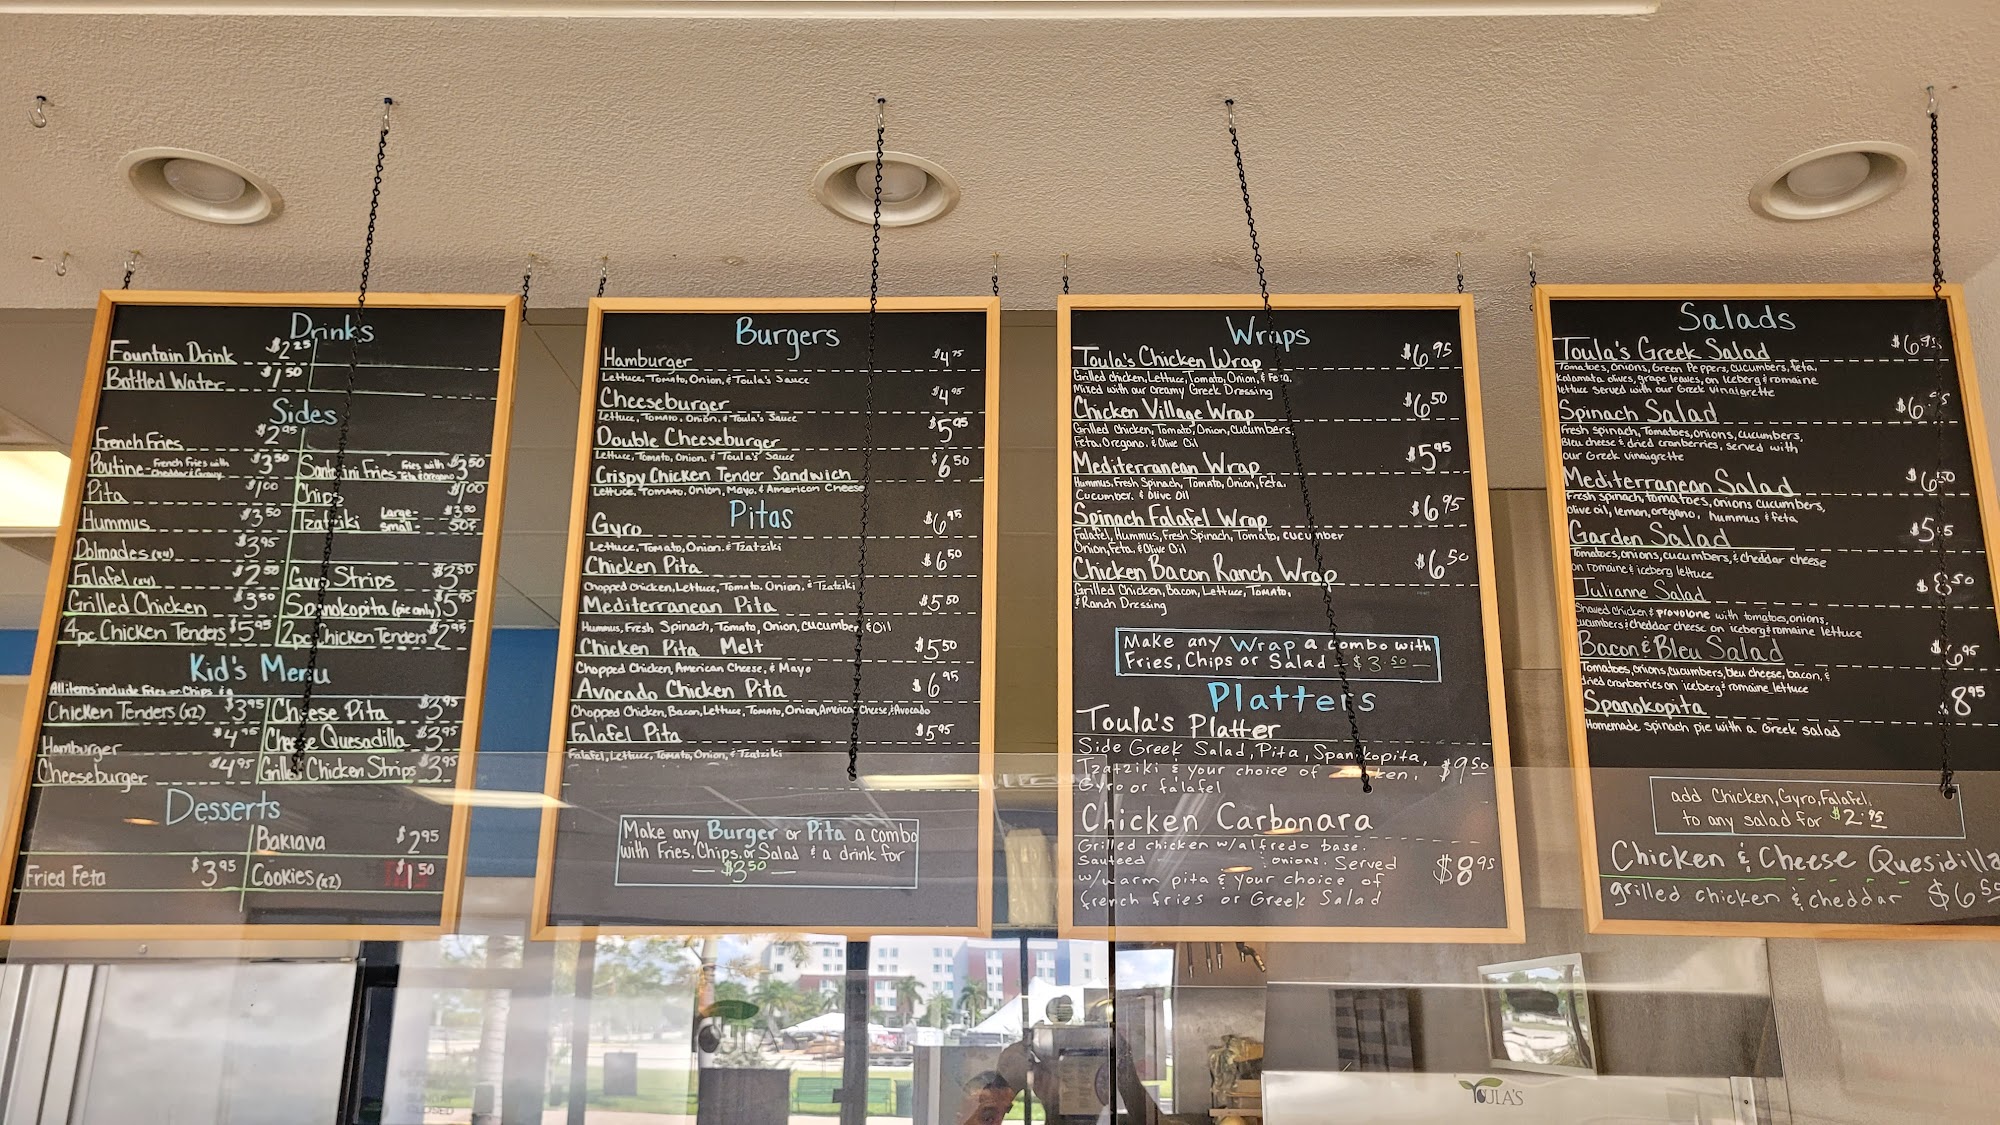 Drinks
Fountain Drink $2.25
Bottled Water $1.50
Sides
French Fries $2.95
Poutine - French Fries with Cheddar & Gravy $3.50
Santorini Fries Fries with Feta & Oregano $3.50
Pita $1.00
Chips $1.00
Hummus $3.50
Tzatziki Large- $3.50
small- 50¢
Dolmades (x4) $3.95
Falafel (x4) $2.50
Gyro Strips $3.50
Grilled Chicken $3.50
Spanokopita (pie only) $5.95
4pc Chicken Tenders $5.95
2pc Chicken Tenders $2.95
Kid's Menu
All items include Fries or Chips
Chicken Tenders (x2) $3.95
Cheese Pita $3.95
Hamburger $4.95
Cheese Quesadilla $3.95
Cheeseburger $4.95
Grilled Chicken Strips $3.95
Desserts
Baklava $2.95
Fried Feta $3.95
Cookies (x2) $1.50
Burgers
Hamburger $4.75
Lettuce, Tomato, Onion, & Toula's Sauce
Cheeseburger $4.95
Lettuce, Tomato, Onion, & Toula's Sauce
Double Cheeseburger $5.95
Lettuce, Tomato, Onion, & Toula's Sauce
Crispy Chicken Tender Sandwich $6.50
Lettuce, Tomato, Onion, Mayo, & American Cheese
Pitas
Gyro $6.95
Lettuce, Tomato, Onion, & Tzatziki
Chicken Pita $6.50
Chopped Chicken, Lettuce, Tomato, Onion, & Tzatziki
Mediterranean Pita $5.50
Hummus, Fresh Spinach, Tomato, Onion, Cucumber, & Oil
Chicken Pita Melt $5.50
Chopped Chicken, American Cheese, & Mayo
Avocado Chicken Pita $6.95
Chopped Chicken, Bacon, Lettuce, Tomato, Onion, American Cheese, & Avocado
Falafel Pita $5.95
Falafel, Lettuce, Tomato, Onion, & Tzatziki
Make any Burger or Pita a combo
with Fries, Chips, or Salad & a drink for
— $3.50 —
Wraps
Toula's Chicken Wrap $6.95
Grilled chicken, Lettuce, Tomato, Onion, & Feta,
Mixed with our creamy Greek Dressing
Chicken Village Wrap $6.50
Grilled Chicken, Tomato, Onion, Cucumbers,
Feta, Oregano, & Olive Oil
Mediterranean Wrap $5.95
Hummus, Fresh Spinach, Tomato, Onion, Feta,
Cucumber, & Olive Oil
Spinach Falafel Wrap $6.95
Falafel, Hummus, Fresh Spinach, Tomato, cucumber
Onion, Feta, & Olive Oil
Chicken Bacon Ranch Wrap $6.50
Grilled Chicken, Bacon, Lettuce, Tomato,
& Ranch Dressing
Make any Wrap a combo with
Fries, Chips or Salad - $3.50 -
Platters
Toula's Platter
Side Greek Salad, Pita, Spanikopita,
Tzatziki & your choice of chicken, $9.50
Gyro or falafel
Chicken Carbonara
Grilled chicken w/alfredo base.
Sauteed onions. Served $8.95
w/warm pita & your choice of
french fries or Greek Salad
Salads
Toula's Greek Salad $6.95
Tomatoes, onions, Green Peppers, cucumbers, feta,
Kalamata olives, grape leaves, on iceberg & romaine
lettuce served with our Greek vinaigrette
Spinach Salad
Fresh spinach, Tomatoes, onions, cucumbers,
Bleu cheese & dried cranberries, served with
our Greek vinaigrette
Mediterranean Salad $6.50
Fresh spinach, tomatoes, onions cucumbers,
olive oil, lemon, oregano, hummus & feta
Garden Salad
Tomatoes, onions, cucumbers, & cheddar cheese
on romaine & iceberg lettuce
Julianne Salad
Shaved chicken & provolone with tomatoes, onions,
cucumbers & cheddar cheese on iceberg & romaine lettuce
Bacon & Bleu Salad $6.95
Tomatoes, onions, cucumbers, bleu cheese, bacon, &
dried cranberries on iceberg & romaine lettuce
Spanokopita $8.95
Homemade spinach pie with a Greek salad
add Chicken, Gyro, Falafel
to any salad for $2.95
Chicken & Cheese Quesidilla
grilled chicken & cheddar $6.50
TOULA'S